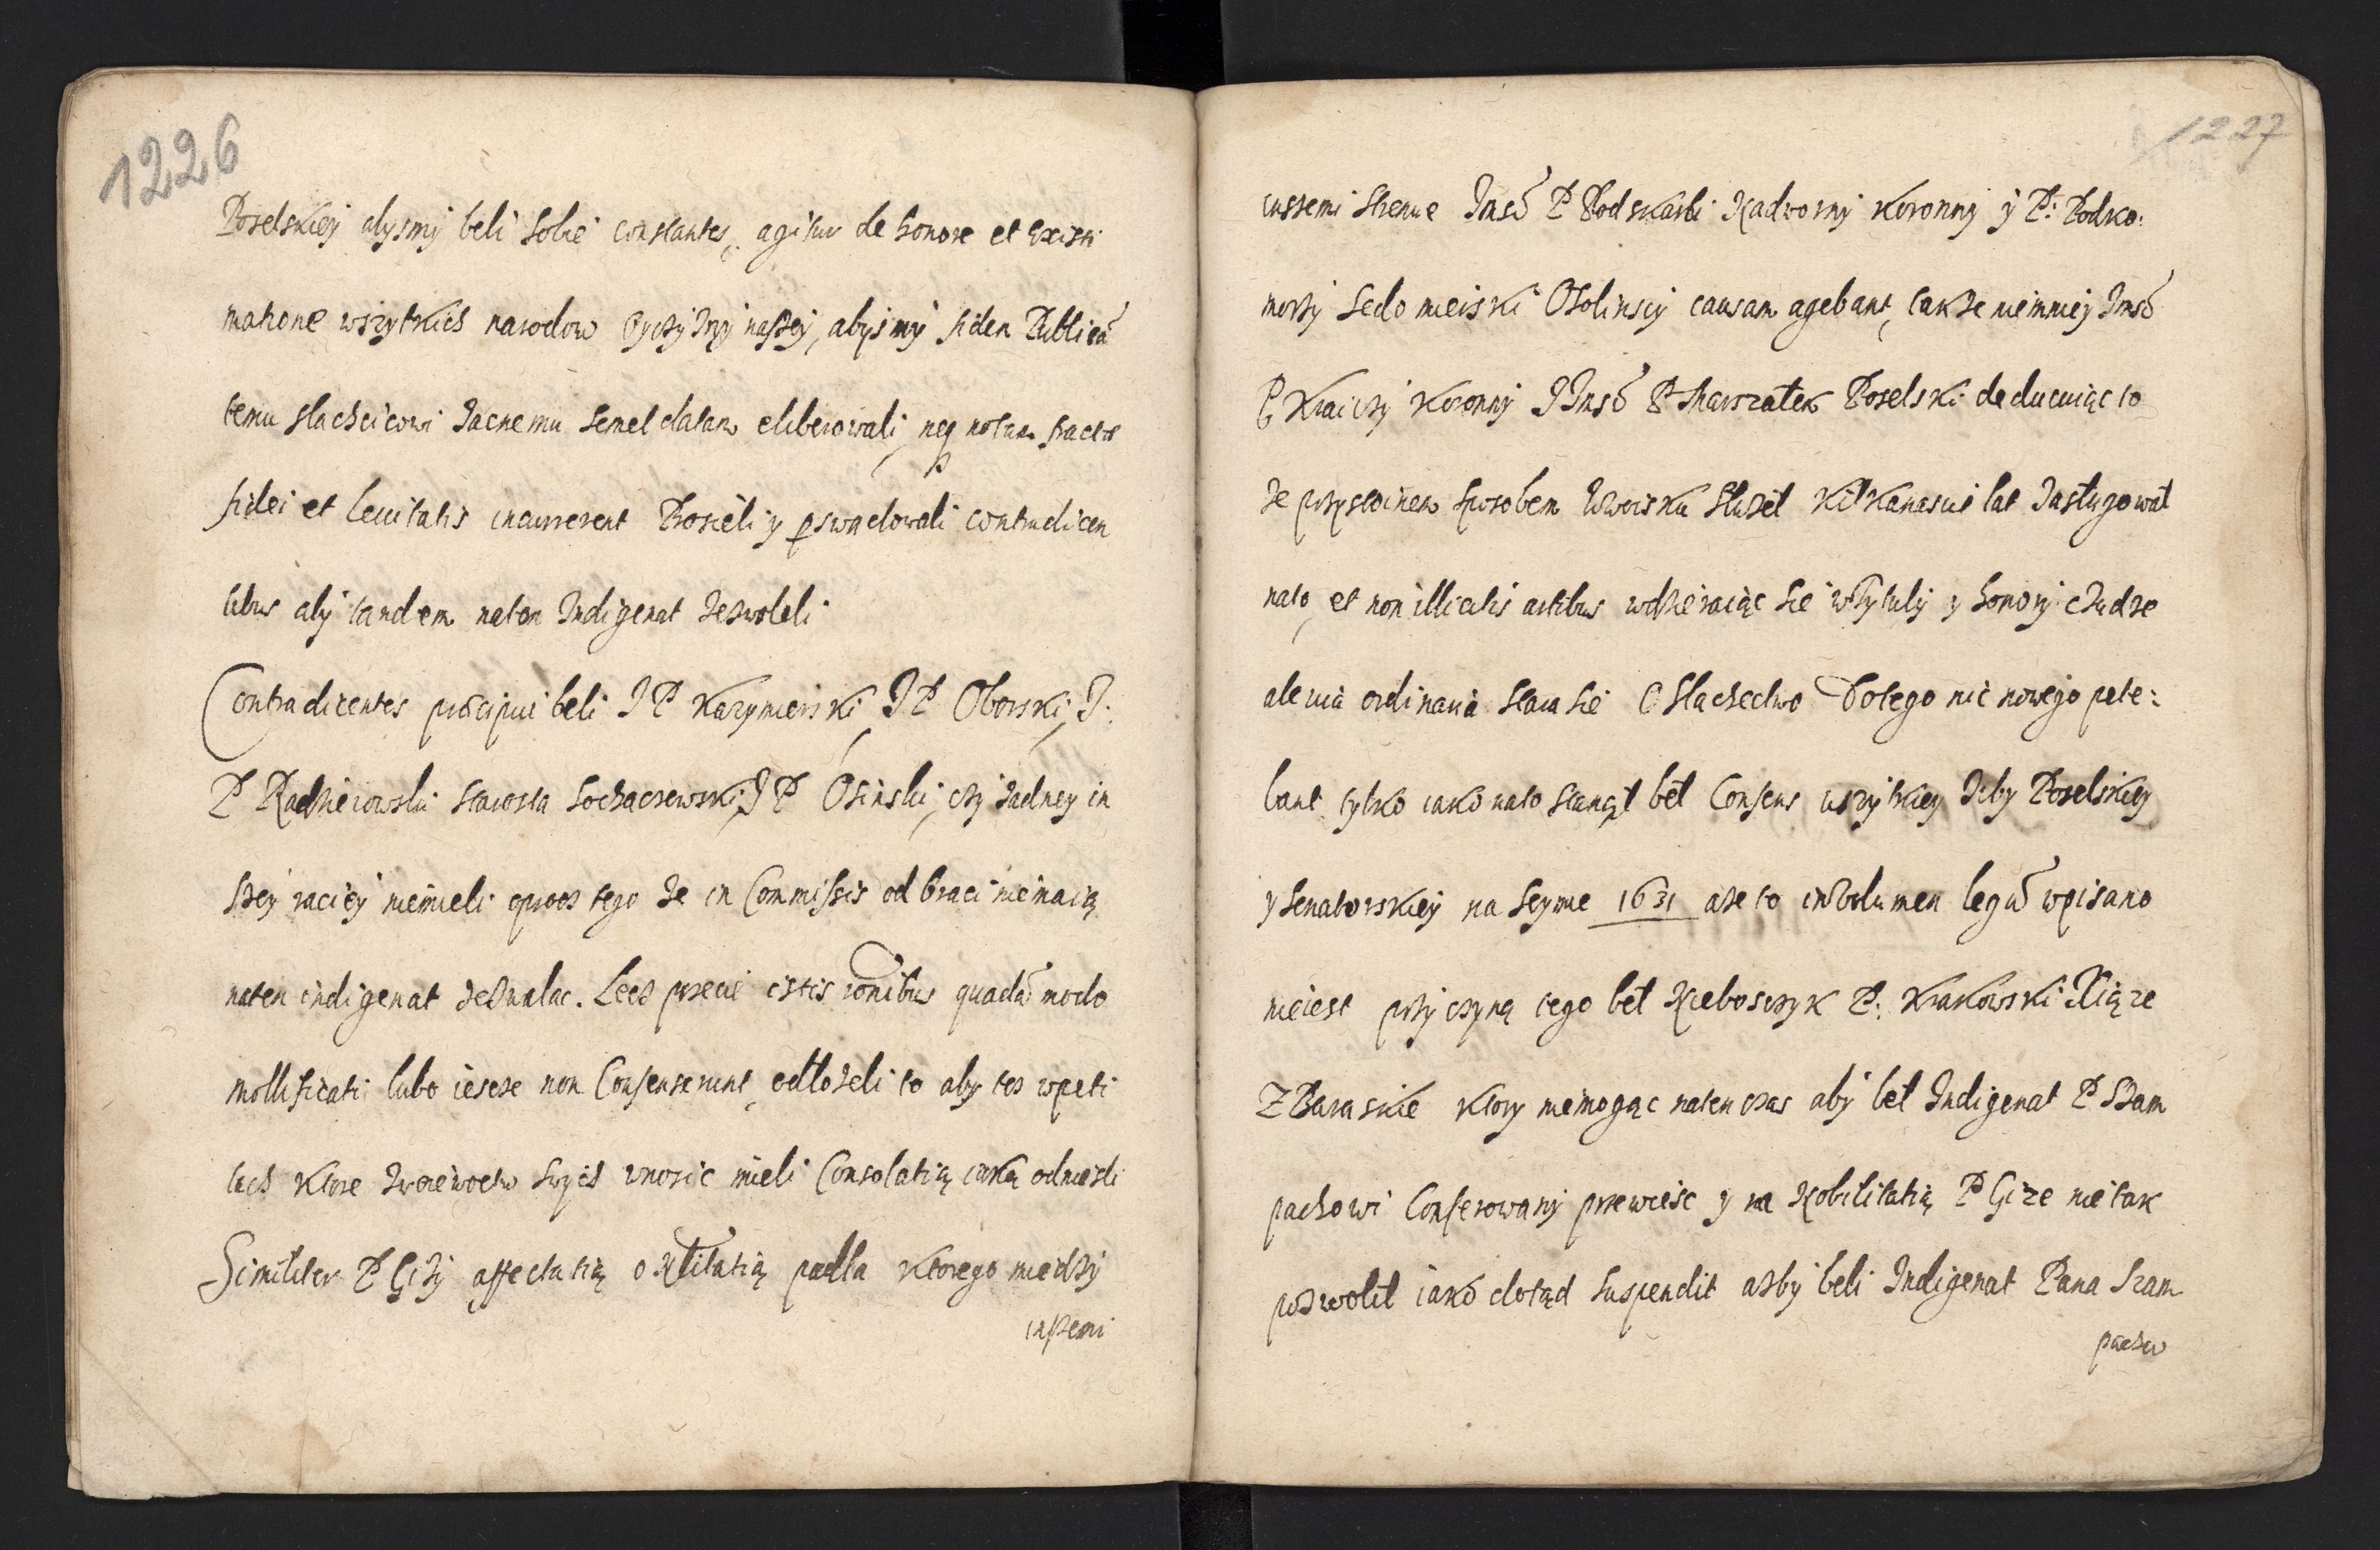 1226
Poselskiey abysmy beli sobie constantes, agitur de honore et existi
matione wszytkich narodow Oyczyzny naszey, abysmy fidem Publicã
temu slachcicowi zacnemu semel datam eliberowali, neq notam fractæ
fidei et levitatis incurrerent Prosieli y pswadowali contradicen
tibus aby tandem naten Indigenat zezwoleli
Contradicentes præcipui beli J P Kazymierski, J P Oborski, J.
P Radzieiowski starosta Sochaczewski, J P Osinski, czy zadney in
szey raciey niemieli oprocz tego ze in Commissis od braci niemaią
naten indigenat zezwalac. Lecz przecie istis rõnibus quadã modo
mollificati lubo iescze non Consenserunt, odłozeli to aby tez w peti
tach ktore z woiewodztw swych wnosic mieli Consolatią iaką odniesli
Similiter P Gizy affectatią o Nobilitatią padła ktorego miedzy
inszemi
1227
inszemi strenue Jmsć P Podskarbi Nadworny Koronny y P. Podko:
morzy Sedomierski Osolinscy causam agebant, takze niemniey Jmsć
P Kraiczy Koronny JJmsć P Marszałek Poselski deducuiąc to
ze przystoinem sposobem w woisku słuzeł kilkanascie lat zasługował
nato, et non illicitis artibus wdzieraiąc sie w Tytuly y honory cudze
ale via ordinaria stara sie o slachectwo Do tego nic nowego pete:
bant tylko iako nato stanął beł Consens wszytkiey Izby Poselskiey
y Senatorskiey na Seymie 1631 a ze to in Volumen legũ wpisano
nieiest przyczyną tego beł Nieboszczyk P. Krakowski Xiąze
Zbaraskie ktory niemogąc naten czas aby beł Indigenat P Szam
pachowi Conferowany przewiesc y na Nobilitatią P Gize nie tak
pozwolił iako dotąd suspendit azby beli Indigenat Pana Szam
pacho